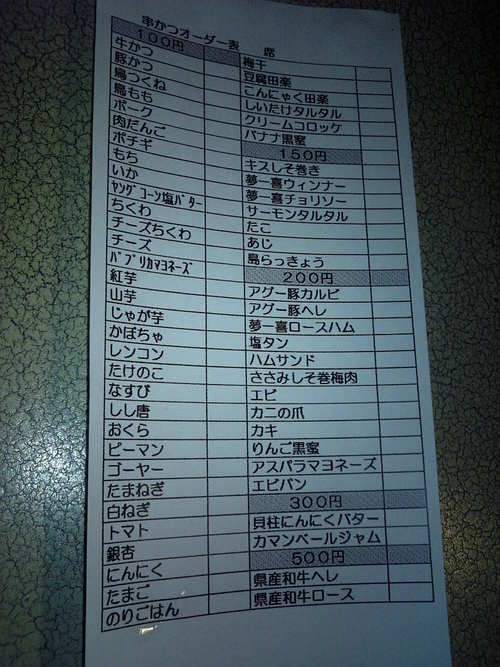 串かつオーダー表 席
100円
牛かつ
豚かつ
鳥つくね
鳥もも
ポーク
肉だんご
ポチギ
もち
いか
ﾔﾝｸﾞｺｰﾝ塩ﾊﾞﾀｰ
ちくわ
チーズちくわ
チーズ
ﾊﾟﾌﾟﾘｶﾏﾖﾈｰｽﾞ
紅芋
山芋
じゃが芋
かぼちゃ
レンコン
たけのこ
なすび
しし唐
おくら
ピーマン
ゴーヤー
たまねぎ
白ねぎ
トマト
銀杏
にんにく
たまご
のりごはん
梅干
豆腐田楽
こんにゃく田楽
しいたけタルタル
クリームコロッケ
バナナ黒蜜
150円
キスしそ巻き
夢一喜ウィンナー
夢一喜チョリソー
サーモンタルタル
たこ
あじ
島らっきょう
200円
アグー豚カルビ
アグー豚ヘレ
夢一喜ロースハム
塩タン
ハムサンド
ささみしそ巻梅肉
エビ
カニの爪
カキ
りんご黒蜜
アスパラマヨネーズ
エビパン
300円
貝柱にんにくバター
カマンベールジャム
500円
県産和牛ヘレ
県産和牛ロース